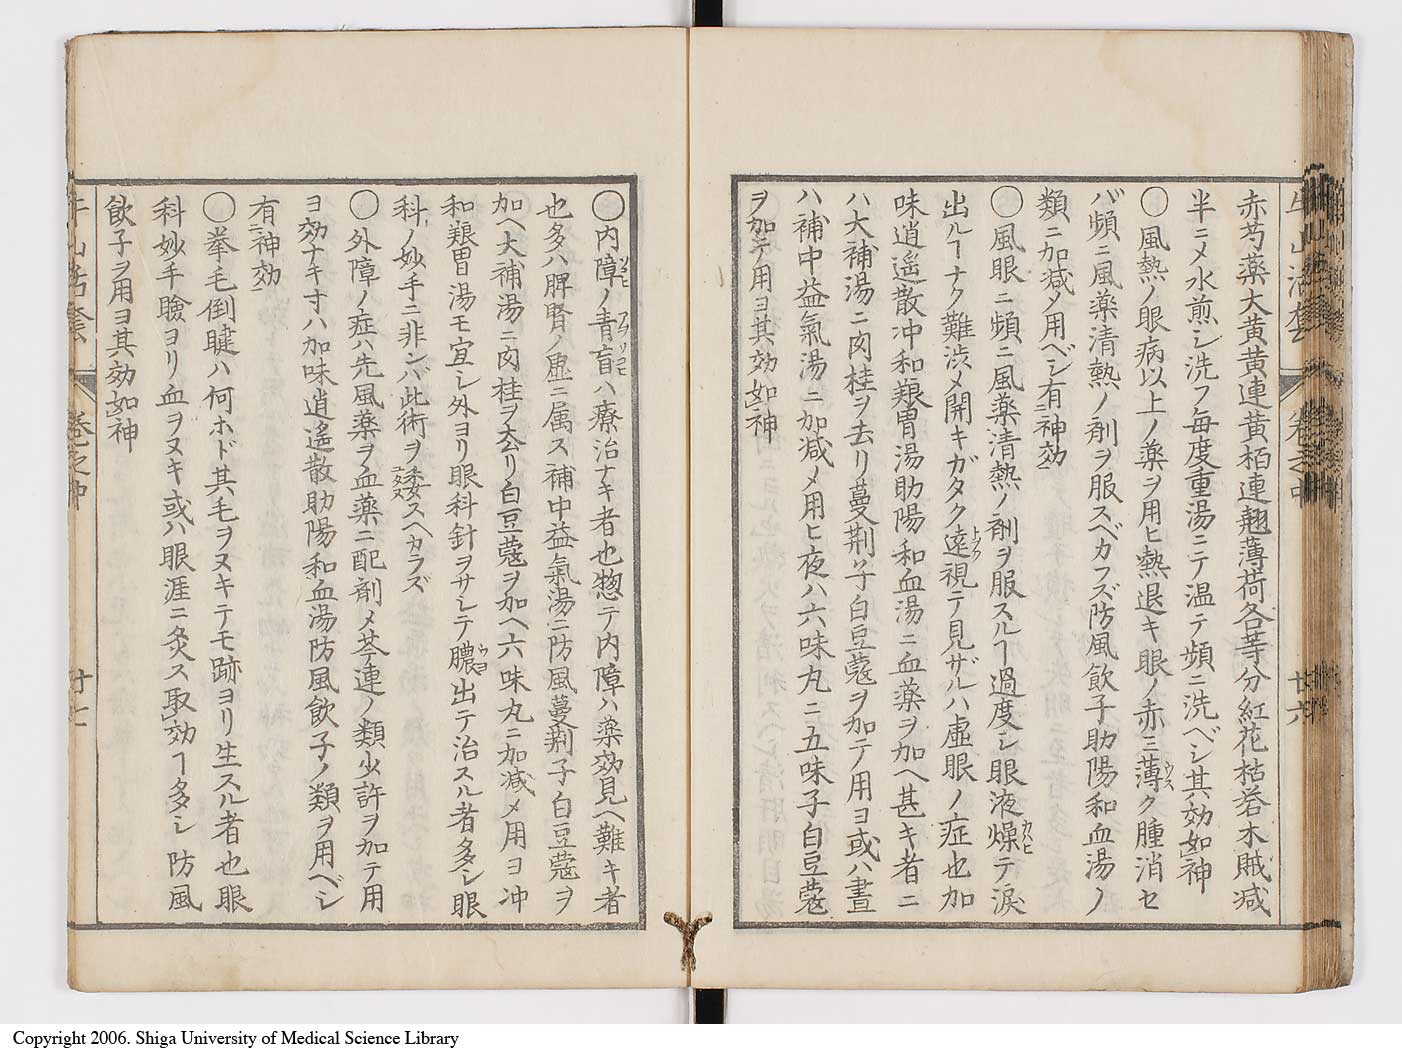 牛山活套 卷之中 廿六
赤芍薬大黄黄連黄栢連翹薄荷各等分紅花枯礬木賊减
半ニメ水煎シ洗フ毎度重湯ニテ温テ頻ニ洗ベシ其効如神
〇風熱ノ眼病以上ノ薬ヲ用ヒ熱退キ眼ノ赤ミ薄ク腫消セ
バ頻ニ風薬清熱ノ剤ヲ服スベカラズ防風飲子助陽和血湯ノ
類ニ加减メ用ベシ有ニ神効一
〇風眼ニ頻ニ風薬清熱ノ剤ヲ服スルヿ過度シ眼液燥テ涙
出ルヿナク難渋メ開キガタク遠視テ見ザルハ虚眼ノ症也加
味逍遙散冲和養胃湯助陽和血湯ニ血薬ヲ加ヘ甚キ者ニ
ハ大補湯ニ肉桂ヲ去リ蔓荆子白豆蔻ヲ加テ用ヨ或ハ晝
ハ補中益氣湯ニ加减メ用ヒ夜ハ六味丸ニ五味子白豆蔻
ヲ加テ用ヨ其効如神
〇内障ノ青盲ハ療治ナキ者也惣テ内障ハ薬効見ヘ難キ者
也多ハ脾腎ノ虚ニ属ス補中益氣湯ニ防風蔓荆子白豆蔻ヲ
加ヘ大補湯ニ肉桂ヲ去リ白豆蔻ヲ加ヘ六味丸ニ加减メ用ヨ冲
和養胃湯モ宜シ外ヨリ眼科針ヲサシテ膿出テ治スル者多シ眼
科ノ妙手ニ非ンバ此術ヲ委スヘカラズ
〇外障ノ症ハ先風薬ヲ血薬ニ配剤メ芩連ノ類少許ヲ加テ用
ヨ効ナキ寸ハ加味逍遙散助陽和血湯防風飲子ノ類ヲ用ベシ
有ニ神効一
〇拳毛倒睫ハ何ホド其毛ヲヌキテモ跡ヨリ生スル者也眼
科妙手瞼ヨリ血ヲヌキ或ハ眼涯ニ灸ス取効ヿ多シ防風
飲子ヲ用ヨ其効如神
牛山活套 卷之中 廿七
Copyright 2006. Shiga University of Medical Science Library